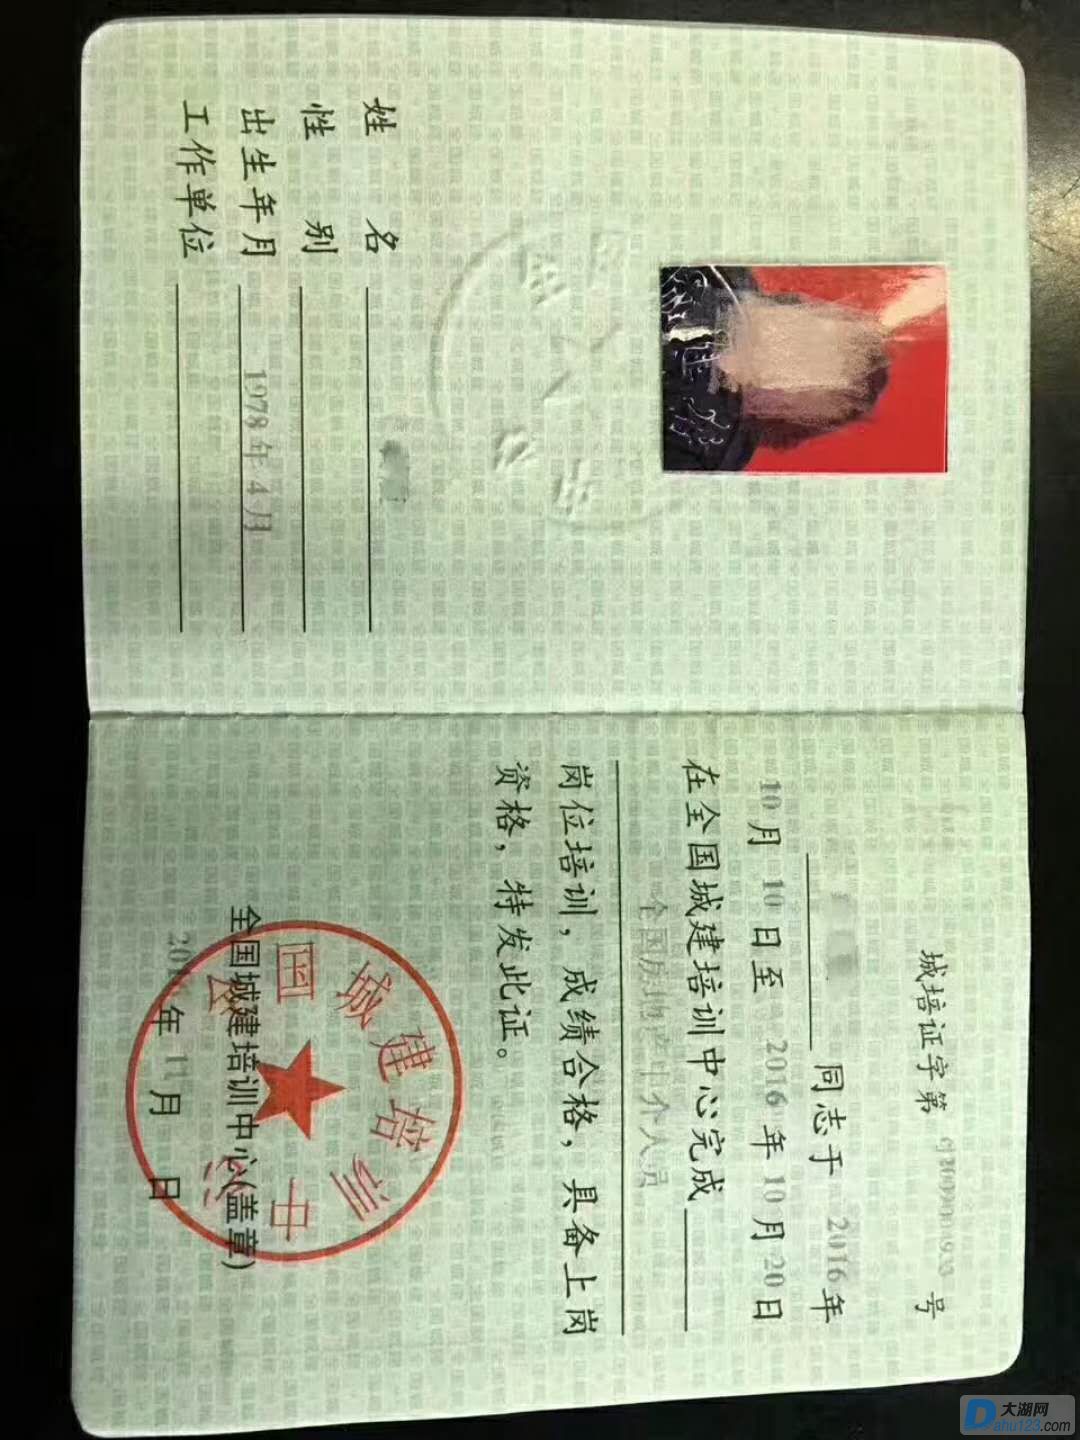 姓 名
性 别
出生年月 1978年4月
工作单位
城培证字第 号
同志于 2016年
10月10日至 2016年10月20日
在全国城建培训中心完成
全国房地产中介人员
岗位培训，成绩合格，具备上岗
资格，特发此证。
全国城建培训中心(盖章)
年11月 日
全国城建培训中心
大湖网
Dahu123.com